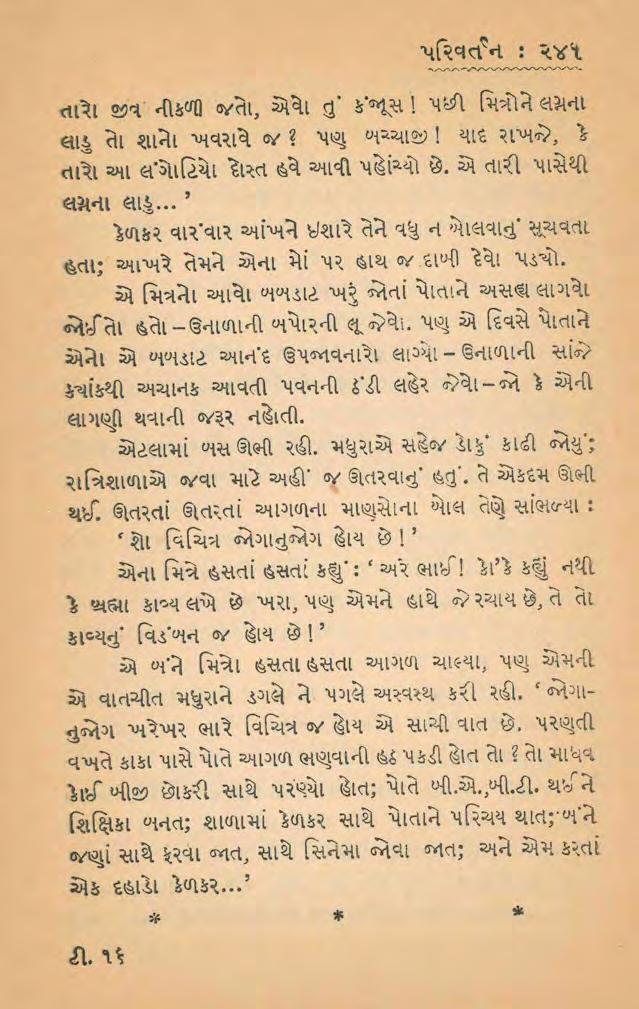 પરિવર્તન : ૨૪૧
તારો જીવ નીકળી જતો, એવો તું કંજૂસ! પછી મિત્રોને લગ્નના
લાડુ તો શાનો ખવરાવે જ? પણ બચ્ચાજી! યાદ રાખજે, કે
તારો આ લંગોટિયો દોસ્ત હવે આવી પહોંચ્યો છે. એ તારી પાસેથી
લગ્નના લાડુ...’
કેળકર વારંવાર આંખને ઇશારે તેને વધુ ન બોલવાનું સૂચવતા
હતા; આખરે તેમને એના મોં પર હાથ જ દાબી દેવો પડ્યો.
એ મિત્રનો આવો બબડાટ ખરું જોતાં પોતાને અસહ્ય લાગવો
જોઈતો હતો–ઉનાળાની બપોરની લૂ જેવો. પણ એ દિવસે પોતાને
એનો એ બબડાટ આનંદ ઉપજાવનારો લાગ્યો–ઉનાળાની સાંજે
ક્યાંકથી અચાનક આવતી પવનની ઠંડી લહેર જેવો–જો કે એની
લાગણી થવાની જરૂર નહોતી.
એટલામાં બસ ઊભી રહી. મધુરાએ સહેજ ડોકું કાઢી જોયું;
રાત્રિશાળાએ જવા માટે અહીં જ ઊતરવાનું હતું. તે એકદમ ઊભી
થઈ. ઊતરતાં ઊતરતાં આગળના માણસોના બોલ તેણે સાંભળ્યા :
‘શો વિચિત્ર જોગાનુજોગ હોય છે!’
એના મિત્રે હસતાં હસતાં કહ્યું: ‘અરે ભાઈ! કો’કે કહ્યું નથી
કે બ્રહ્મા કાવ્ય લખે છે ખરા, પણ એમને હાથે જે રચાય છે, તે તો
કાવ્યનું વિડંબન જ હોય છે!’
એ બંને મિત્રો હસતા હસતા આગળ ચાલ્યા, પણ એમની
એ વાતચીત મધુરાને ડગલે ને પગલે અસ્વસ્થ કરી રહી. ‘જોગા-
નુજોગ ખરેખર ભારે વિચિત્ર જ હોય એ સાચી વાત છે. પરણતી
વખતે કાકા પાસે પોતે આગળ ભણવાની હઠ પકડી હોત તો? તો માધવ
કોઈ બીજી છોકરી સાથે પરણ્યો હોત; પોતે બી.એ.,બી.ટી. થઈને
શિક્ષિકા બનત; શાળામાં કેળકર સાથે પોતાને પરિચય થાત; બંને
જણાં સાથે ફરવા જાત, સાથે સિનેમા જોવા જાત; અને એમ કરતાં
એક દહાડો કેળકર...’
* * *
ટી. ૧૬